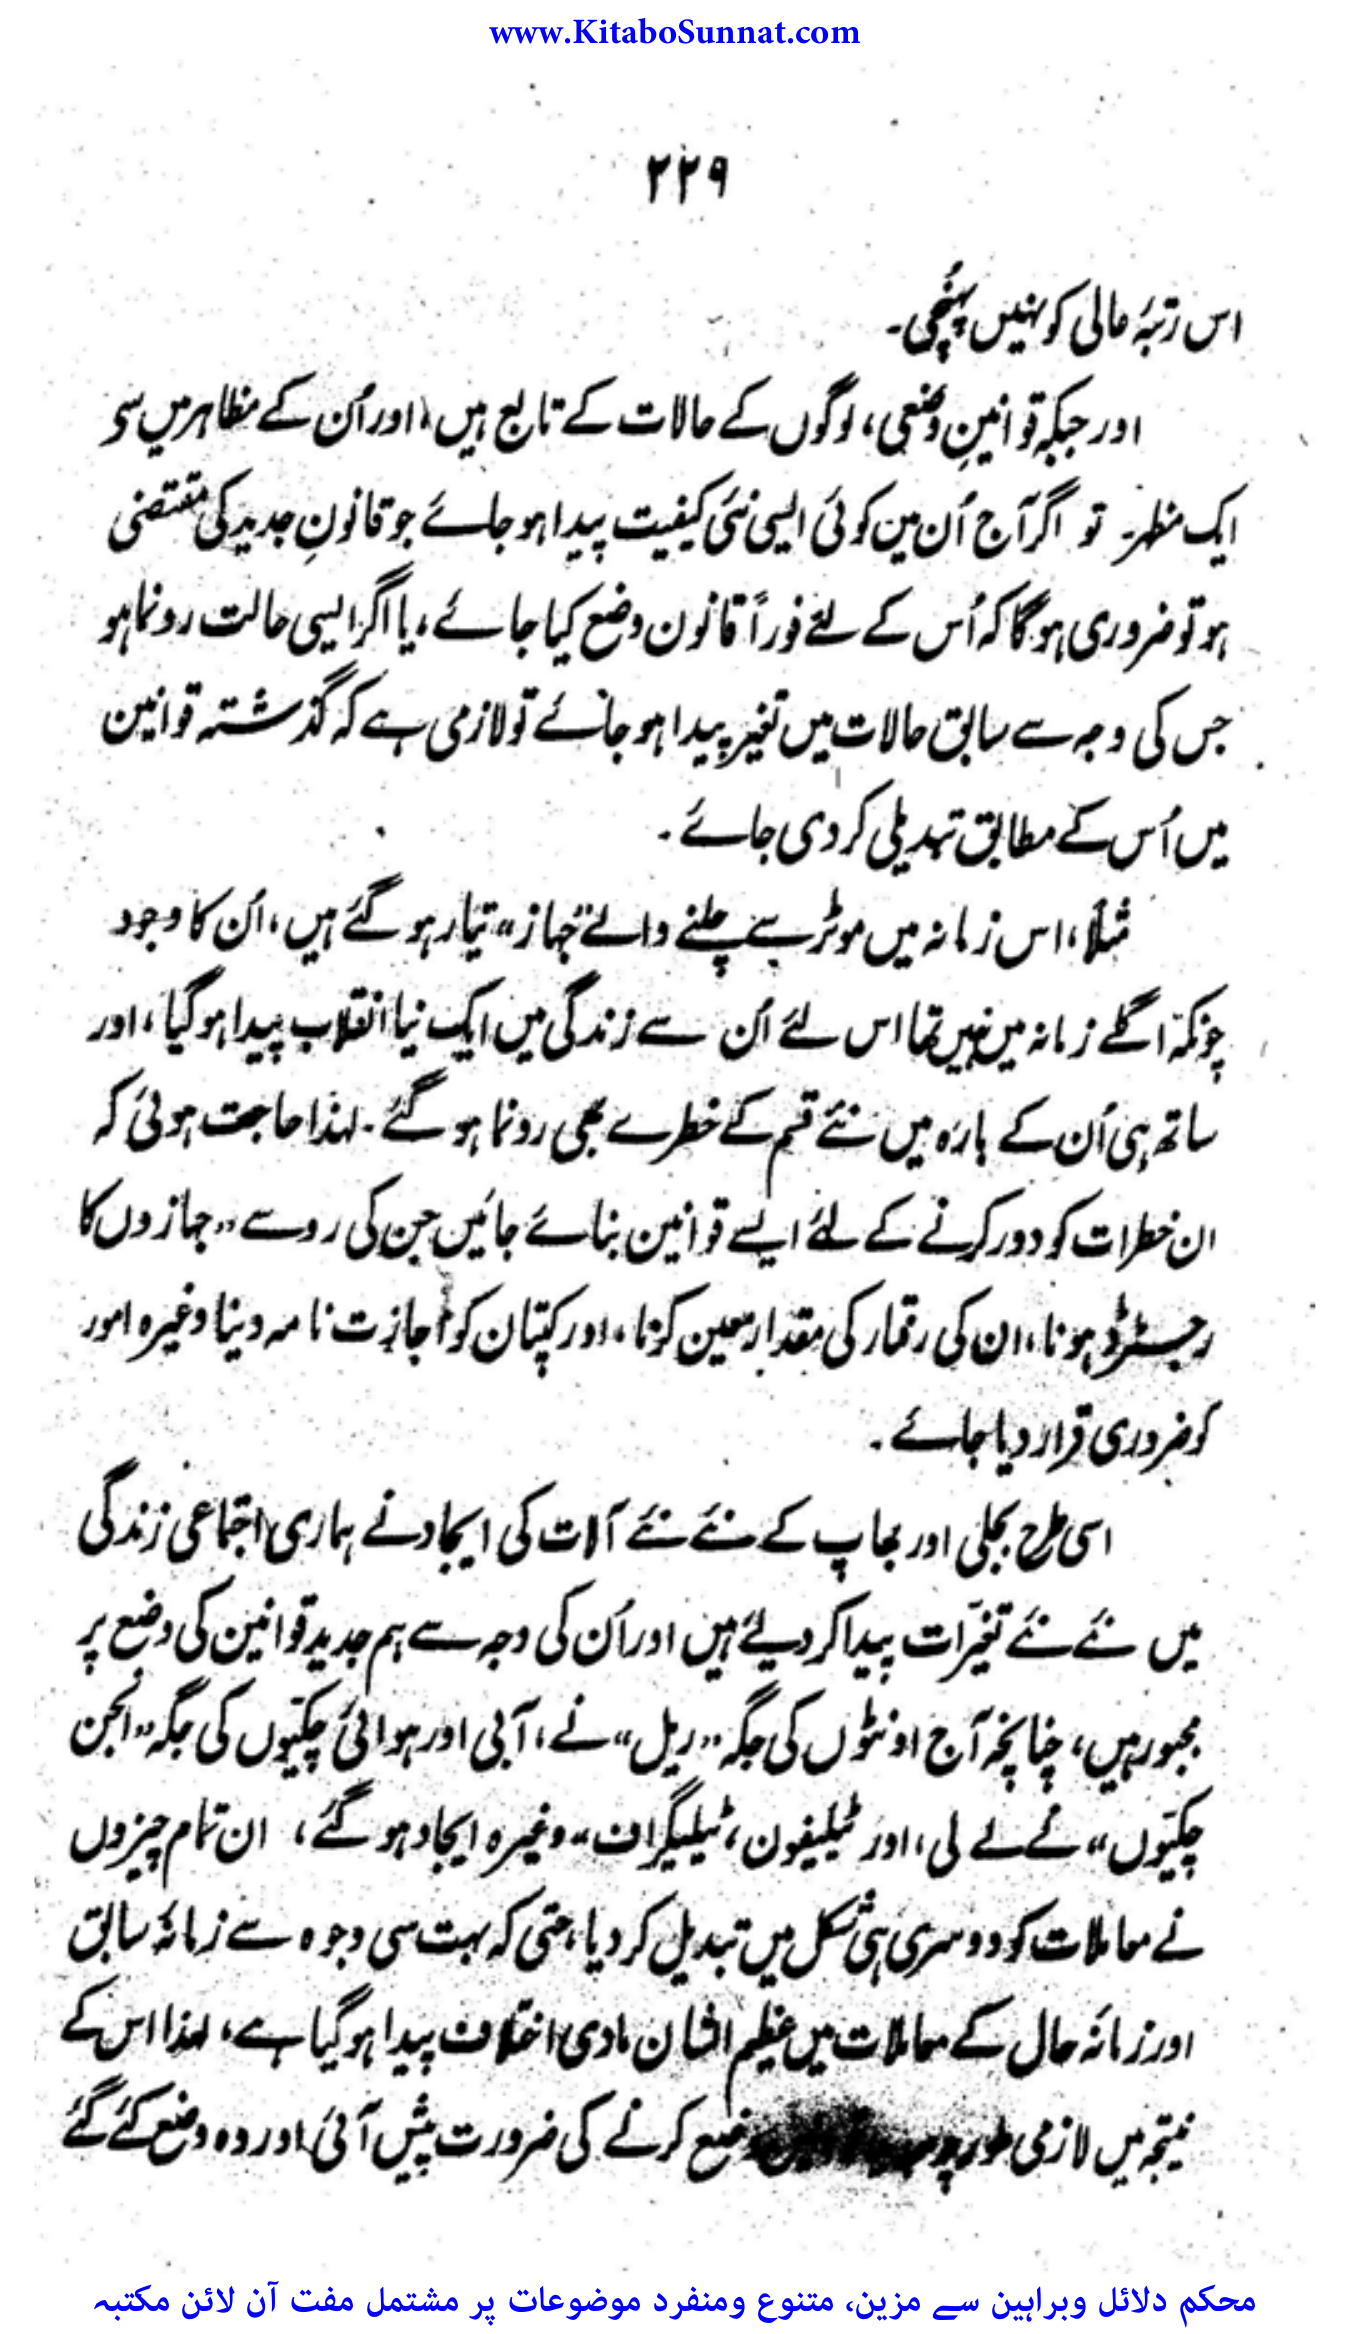 www.KitaboSunnat.com
۲۲۹
اس رتبۂ عالی کو نہیں پہنچی۔
اور جبکہ قوانینِ وضعی، لوگوں کے حالات کے تابع ہیں، اور اُن کے مظاہر میں سے
ایک مظہر۔ تو اگر آج اُن میں کوئی ایسی نئی کیفیت پیدا ہو جائے جو قانونِ جدید کی مقتضی
ہو تو ضروری ہو گا کہ اُس کے لئے فوراً قانون وضع کیا جائے، یا اگر ایسی حالت رونما ہو
جس کی وجہ سے سابق حالات میں تغیر پیدا ہو جائے تو لازمی ہے کہ گذشتہ قوانین
میں اُس کے مطابق تبدیلی کر دی جائے۔
مثلاً، اس زمانہ میں موٹر سے چلنے والے "جہاز" تیار ہو گئے ہیں، اُن کا وجود
چونکہ اگلے زمانہ میں نہیں تھا اس لئے اُن سے زندگی میں ایک نیا انقلاب پیدا ہو گیا، اور
ساتھ ہی اُن کے بارہ میں نئے قسم کے خطرے بھی رونما ہو گئے۔ لہذا حاجت ہوئی کہ
ان خطرات کو دور کرنے کے لئے ایسے قوانین بنائے جائیں جن کی رو سے "جہازوں کا
رجسٹرڈ ہونا، ان کی رفتار کی مقدار معین کرنا، اور کپتان کو اجازت نامہ دینا وغیرہ امور
کو ضروری قرار دیا جائے۔
اسی طرح بجلی اور بھاپ کے نئے نئے آلات کی ایجاد نے ہماری اجتماعی زندگی
میں نئے نئے تغیرات پیدا کر دیئے ہیں اور اُن کی وجہ سے ہم جدید قوانین کی وضع پر
مجبور ہیں، چنانچہ آج اونٹوں کی جگہ "ریل" نے، آبی اور ہوائی چکیوں کی جگہ "انجن
چکیوں" نے لے لی، اور ٹیلیفون، ٹیلیگراف" وغیرہ ایجاد ہو گئے، ان تمام چیزوں
نے معاملات کو دوسری ہی شکل میں تبدیل کر دیا، حتی کہ بہت سی وجوہ سے زمانۂ سابق
اور زمانۂ حال کے معاملات میں عظیم الشان مادی اختلاف پیدا ہو گیا ہے، لہذا اس کے
نتیجہ میں لازمی طور پر وضع کرنے کی ضرورت پیش آئی اور وہ وضع کئے گئے
محکم دلائل وبراہین سے مزین، متنوع ومنفرد موضوعات پر مشتمل مفت آن لائن مکتبہ